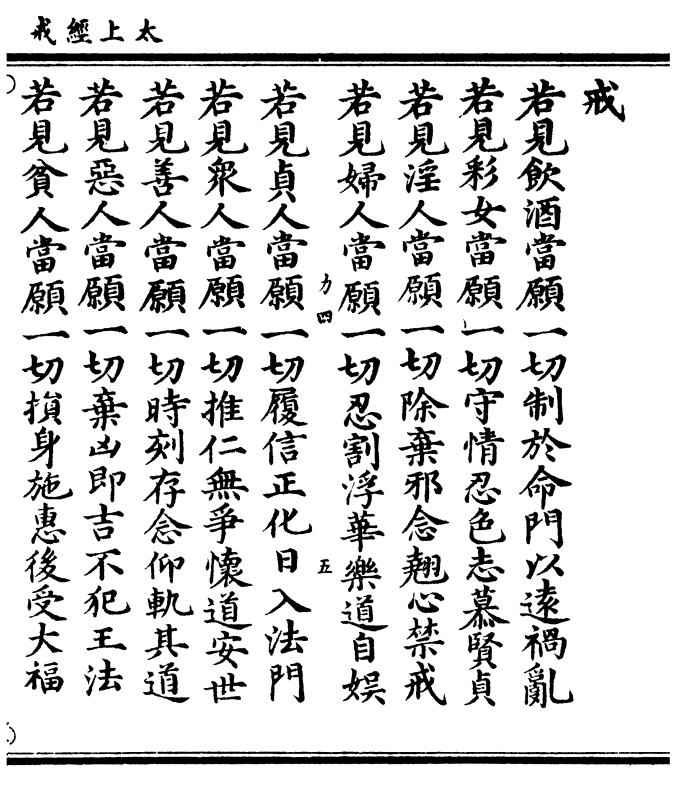 太上經戒
戒
若見飲酒當願一切制於命門以遠禍亂
若見彩女當願一切守情忍色志慕賢貞
若見淫人當願一切除棄邪念翹心禁戒
若見婦人當願一切忍割浮華樂道自娛
力四 五
若見貞人當願一切履信正化日入法門
若見衆人當願一切推仁無爭懷道安世
若見善人當願一切時刻存念仰軌其道
若見惡人當願一切棄凶即吉不犯王法
若見貧人當願一切損身施惠後受大福